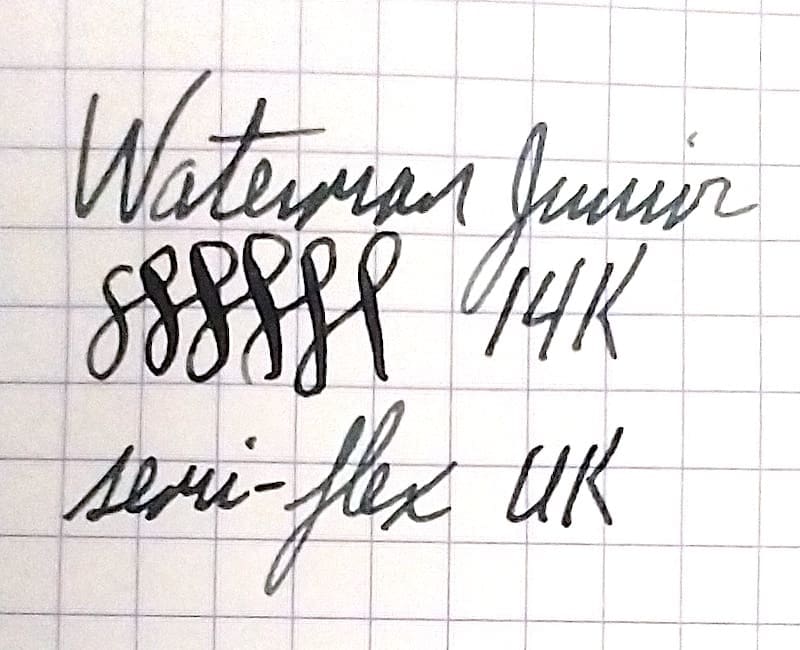 Waterman Junior
14K
semi-flex UK